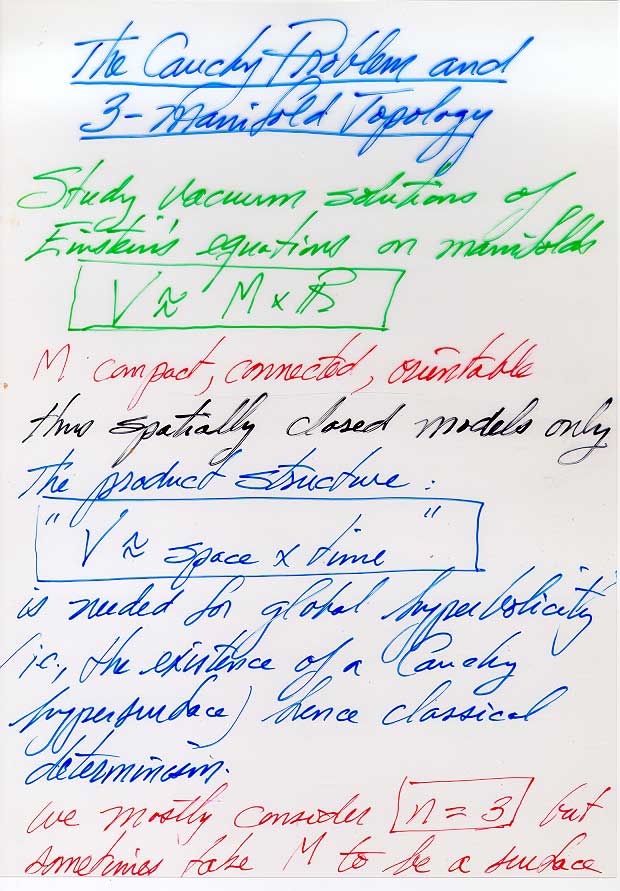 The Cauchy Problem and
3-Manifold Topology
Study vacuum solutions of
Einstein's equations on manifolds
V ≈ M × ℝ
M compact, connected, orientable
thus spatially closed models only
The product structure :
"V ≈ space × time"
is needed for global hyperbolicity
(i.e., the existence of a Cauchy
hypersurface) hence classical
determinism.
We mostly consider n = 3 but
sometimes take M to be a surface